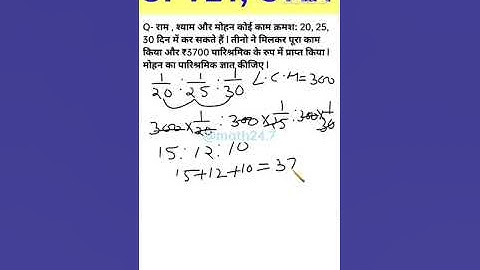 Q- राम , श्याम और मोहन कोई काम क्रमश: 20, 25,
30 दिन में कर सकते हैं । तीनो ने मिलकर पूरा काम
किया और ₹3700 पारिश्रमिक के रूप में प्राप्त किया ।
मोहन का पारिश्रमिक ज्ञात कीजिए ।
1/20 : 1/25 : 1/30 L.C.M=300
300×1/20 : 300×1/25 : 300×1/30
@math24.7
15 : 12 : 10
15+12+10=37